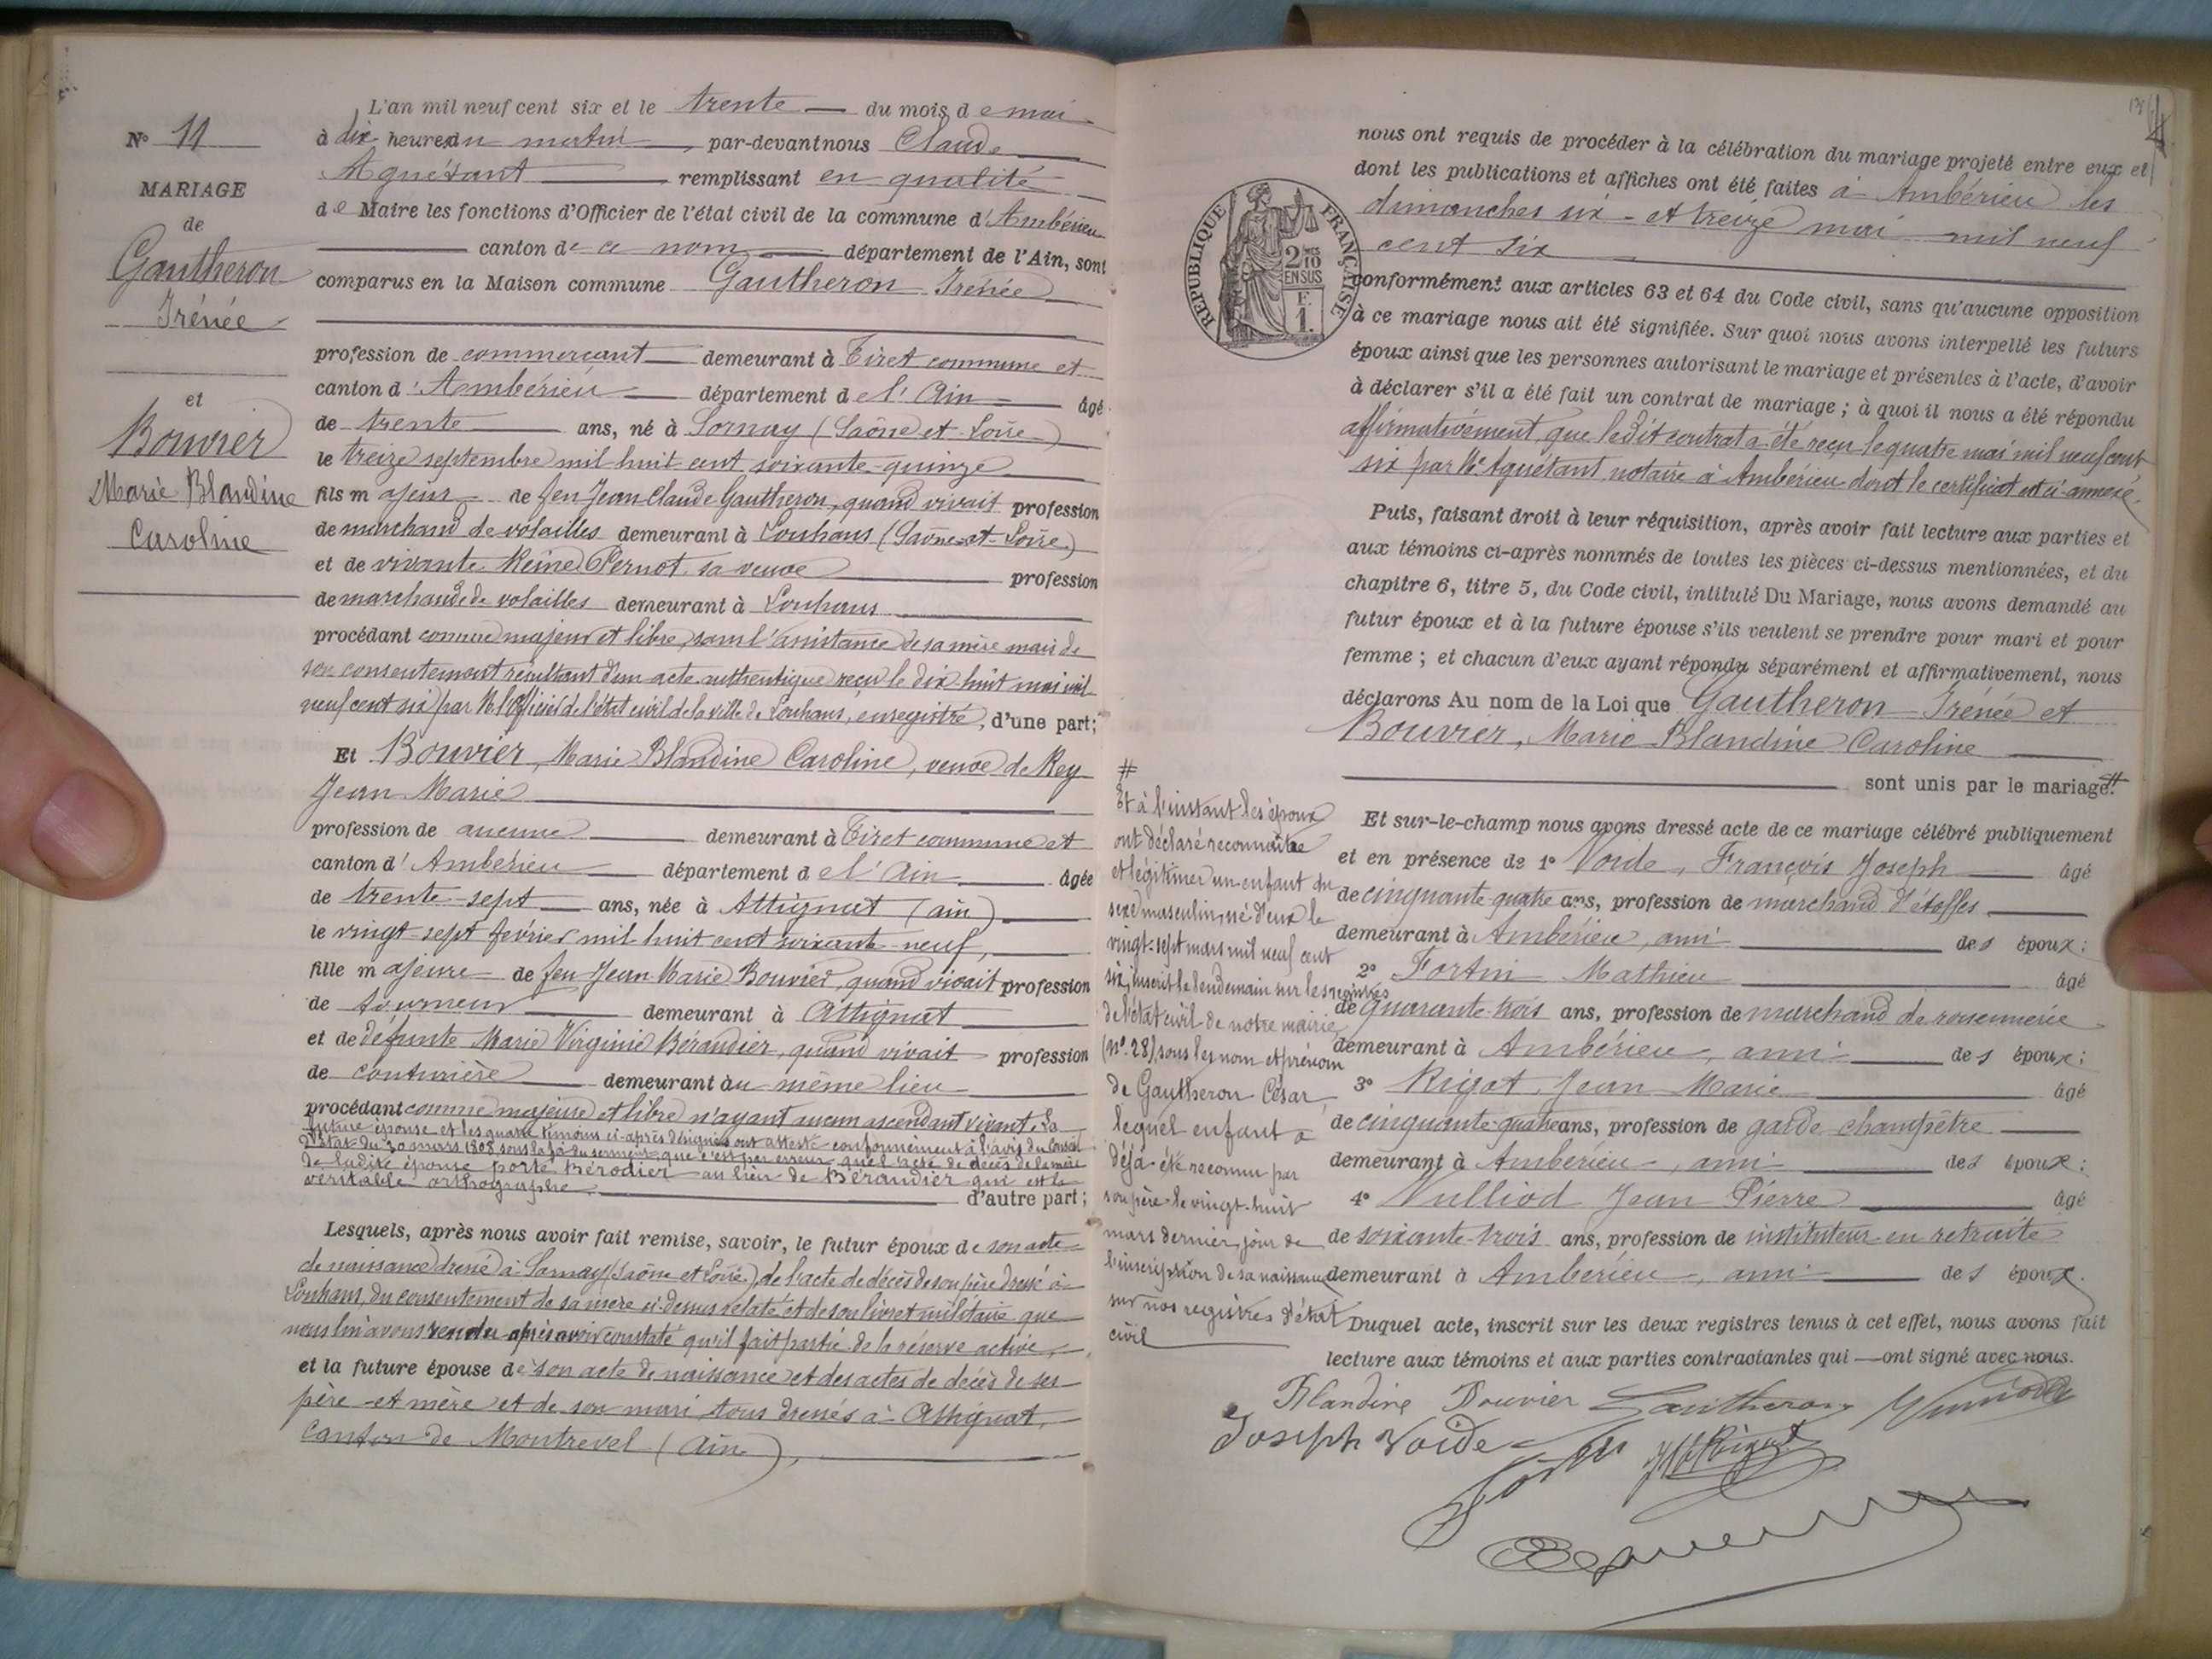 L'an mil neuf cent six et le trente du mois de mai
N° 11
à dix heures du matin par-devant nous Claude
Aguétant remplissant en qualité
MARIAGE
de Maire les fonctions d'Officier de l'état civil de la commune d'Ambérieu
de
canton de ce nom département de l'Ain, sont
Gautheron
comparus en la Maison commune Gautheron Irénée
Irénée
profession de commerçant demeurant à Tiret commune et
canton d'Ambérieu département de l'Ain âgé
et
de trente ans, né à Sornay (Saône et Loire)
Bouvier
le treize septembre mil huit cent soixante quinze
Marie Blandine
fils majeur de feu Jean Claude Gautheron, quand vivait profession
Caroline
de marchand de volailles demeurant à Louhans (Saône-et-Loire)
et de vivante Reine Pernot sa veuve profession
de marchande de volailles demeurant à Louhans
procédant comme majeur et libre, sans l'assistance de sa mère mais de
son consentement résultant d'un acte authentique reçu le dix huit mai mil
neuf cent six par M. l'officier de l'état civil de la ville de Louhans, enregistré, d'une part;
Et Bouvier, Marie Blandine Caroline, veuve de Rey
Jean Marie
profession de aucune demeurant à Tiret commune et
canton d'Ambérieu département de l'Ain âgée
de trente-sept ans, née à Attignat (ain)
le vingt-sept février mil huit cent soixante-neuf,
fille majeure de feu Jean-Marie Bouvier, quand vivait profession
de tourneur demeurant à Attignat
et de défunte Marie Virginie Béraudier, quand vivait profession
de couturière demeurant au même lieu
procédant comme majeure et libre n'ayant aucun ascendant vivant. La
future épouse et les quatre témoins ci-après désignés ont attesté conformément à l'avis du Conseil
d'État du 30 mars 1808 sous la foi du serment que c'est par erreur que l'acte de décès de la mère
de ladite épouse porte Bérodier au lieu de Béraudier qui est la
véritable orthographe. d'autre part;
Lesquels, après nous avoir fait remise, savoir, le futur époux de son acte
de naissance dressé à Sornay (Saône et Loire), de l'acte de décès de son père dressé à
Louhans, du consentement de sa mère ci-dessus relaté et de son livret militaire que
nous lui avons rendu après avoir constaté qu'il fait partie de la réserve active,
et la future épouse de son acte de naissance et des actes de décès de ses
père et mère et de son mari tous dressés à Attignat,
canton de Montrevel (Ain),
nous ont requis de procéder à la célébration du mariage projeté entre eux et
dont les publications et affiches ont été faites à Ambérieu les
dimanches six et treize mai mil neuf
cent six
RÉPUBLIQUE FRANÇAISE
2/10 EN SUS
F. 1.
conformément aux articles 63 et 64 du Code civil, sans qu'aucune opposition
à ce mariage nous ait été signifiée. Sur quoi nous avons interpellé les futurs
époux ainsi que les personnes autorisant le mariage et présentes à l'acte, d'avoir
à déclarer s'il a été fait un contrat de mariage; à quoi il nous a été répondu
affirmativement, que ledit contrat a été reçu le quatre mai mil neuf cent
six par Me Aguétant, notaire à Ambérieu dont le certificat est ci-annexé.
Puis, faisant droit à leur réquisition, après avoir fait lecture aux parties et
aux témoins ci-après nommés de toutes les pièces ci-dessus mentionnées, et du
chapitre 6, titre 5, du Code civil, intitulé Du Mariage, nous avons demandé au
futur époux et à la future épouse s'ils veulent se prendre pour mari et pour
femme; et chacun d'eux ayant répondu séparément et affirmativement, nous
déclarons Au nom de la Loi que Gautheron Irénée et
Bouvier, Marie Blandine Caroline
sont unis par le mariage. #
#
Et à l'instant les époux
ont déclaré reconnaître
et légitimer un enfant du
sexe masculin, né d'eux le
vingt-sept mars mil neuf cent
six, inscrit le lendemain sur les registres
de l'état civil de notre mairie
(n°. 28) sous les nom et prénom
de Gautheron César,
lequel enfant a
déjà été reconnu par
son père le vingt-huit
mars dernier, jour de
l'inscription de sa naissance
sur nos registres d'état
civil
Et sur-le-champ nous avons dressé acte de ce mariage célébré publiquement
et en présence de 1° Voide, François Joseph âgé
de cinquante-quatre ans, profession de marchand d'étoffes
demeurant à Ambérieu, ami des époux;
2° Fortin Mathieu âgé
de quarante-trois ans, profession de marchand de rouennerie
demeurant à Ambérieu, ami des époux;
3° Rigot, Jean Marie âgé
de cinquante-quatre ans, profession de garde champêtre
demeurant à Ambérieu, ami des époux;
4° Vulliod Jean Pierre âgé
de soixante-trois ans, profession de instituteur en retraite
demeurant à Ambérieu, ami des époux.
Duquel acte, inscrit sur les deux registres tenus à cet effet, nous avons fait
lecture aux témoins et aux parties contractantes qui ont signé avec nous.
Blandine Bouvier Gautheron
Joseph Voide JM Rigot